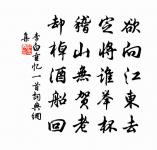 欲向江東去
定將誰舉杯
稽山無賀老
却棹酒船回
李白重忆一首詞典網
集